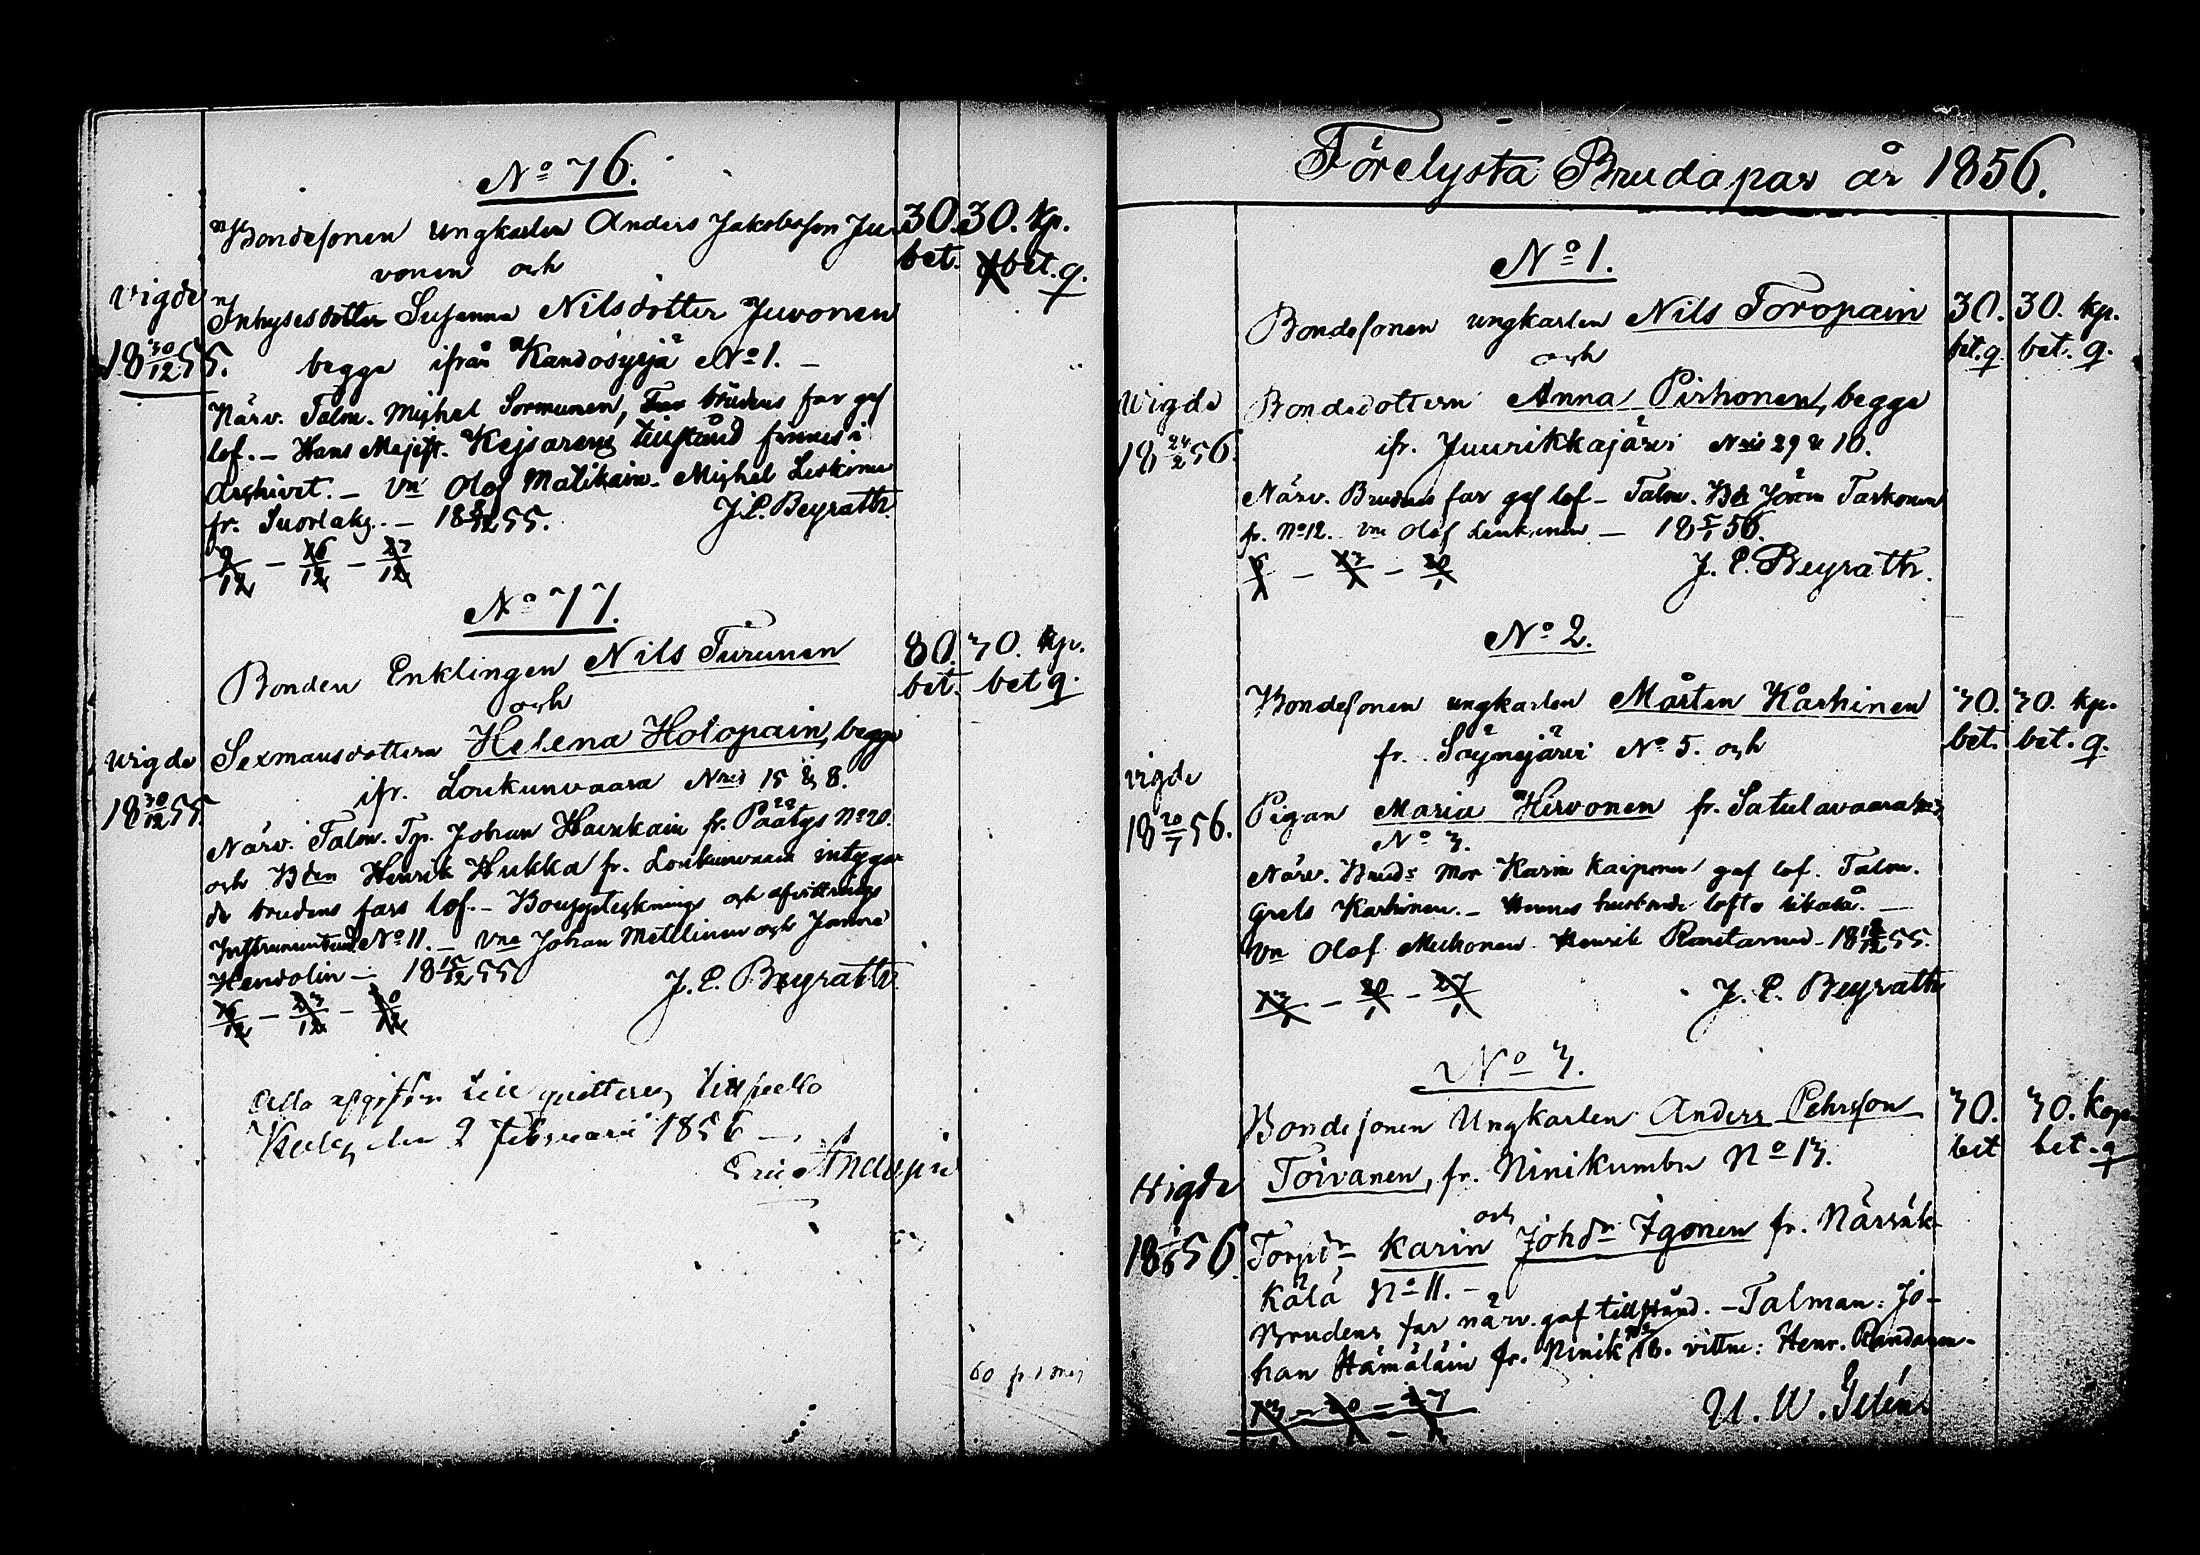 No 76.
Bondesonen ungkarlen Anders Jakobsson Ju-
vonen och
Inhysesdotter Susanna Nilsdotter Juvonen
begge ifrån Kandosyrjä No 1. –
Närv. Talm. Mighel Sormunen, brudens far gaf
lof. – Hans Majest. Kejsarens tillstånd finnes i
Archivet. – Vn Olof Matikain. Mighel Leskinen
fr. Suorlaks. – 18 12 55. J. E. Beyrath.
9/12 – 16/12 – 23/12
vigde
18 30/12 55.
30. 30. kp.
bet. bet. q.
No 77.
Bonden Enklingen Nils Turunen
och
Sexmansdottern Helena Holopain, begge
ifr. Loukunvaara Nris 15 & 8.
Närv. Talm. Tp. Johan Haurkain fr. Päätys No 20.
och Bden Henrik Hukka fr. Loukunvaara intyga-
de brudens fars lof. – Boupptecknings och afvittrings
Instrumentend. No 11. – Vne Johan Mettlinen och Janne
Hendolin – 18 15/12 55. J. E. Beyrath.
16/12 – 23/12 – 30/12
vigde
18 30/12 55.
30. 30. kp.
bet. bet q.
Alla afgifter
den 2 Februari 1856
60 fr. 1 Maj
Förelysta Brudapar år 1856.
No 1.
Bondesonen ungkarlen Nils Toropain
och
Bondedottern Anna Pirhonen, begge
ifr. Juurikkajärvi Nris 29 & 10.
Närv. Brudens far gaf lof – Talm. Bd Jöran Tarkonen
fr. No 12. Vne Olof Leukunen – 18 5/1 56.
6/1 – 13/1 – 20/1 J. E. Beyrath.
Vigde
18 24/2 56.
30. 30. kp.
bet. q. bet. q.
No 2.
Bondesonen ungkarlen Mårten Kärhinen
fr. Säynejärvi No 5. och
Pigan Maria Hirvonen fr. Satulavaara
No 3.
Närv. Bruds Mor Karin Kaiponen gaf lof. Talm.
Grels Karhinen. – Hennes husbonde lofte likaså. –
Vn Olof Muhonen. Henrik Rantanen – 18 12 55.
13/1 – 20/1 – 27/1 J. E. Beyrath
vigde
18 20/7 56.
30. 30. kp.
bet. bet. q.
No 3.
Bondesonen Ungkarlen Anders Pehrsson
Toivanen, fr. Ninikumbu No 13.
och
Torpdr Karin Johdr Igonen fr. Närsäk-
kälä No 11. –
Brudens far närv. gaf tillstånd. – Talman: Jo-
han Hämäläin fr. Ninik No 18. vittne: Henr. Randanen.
13 – 20 – 27 U. W.
Vigde
18 1/6 56
30. 30. Kop
bet bet. q